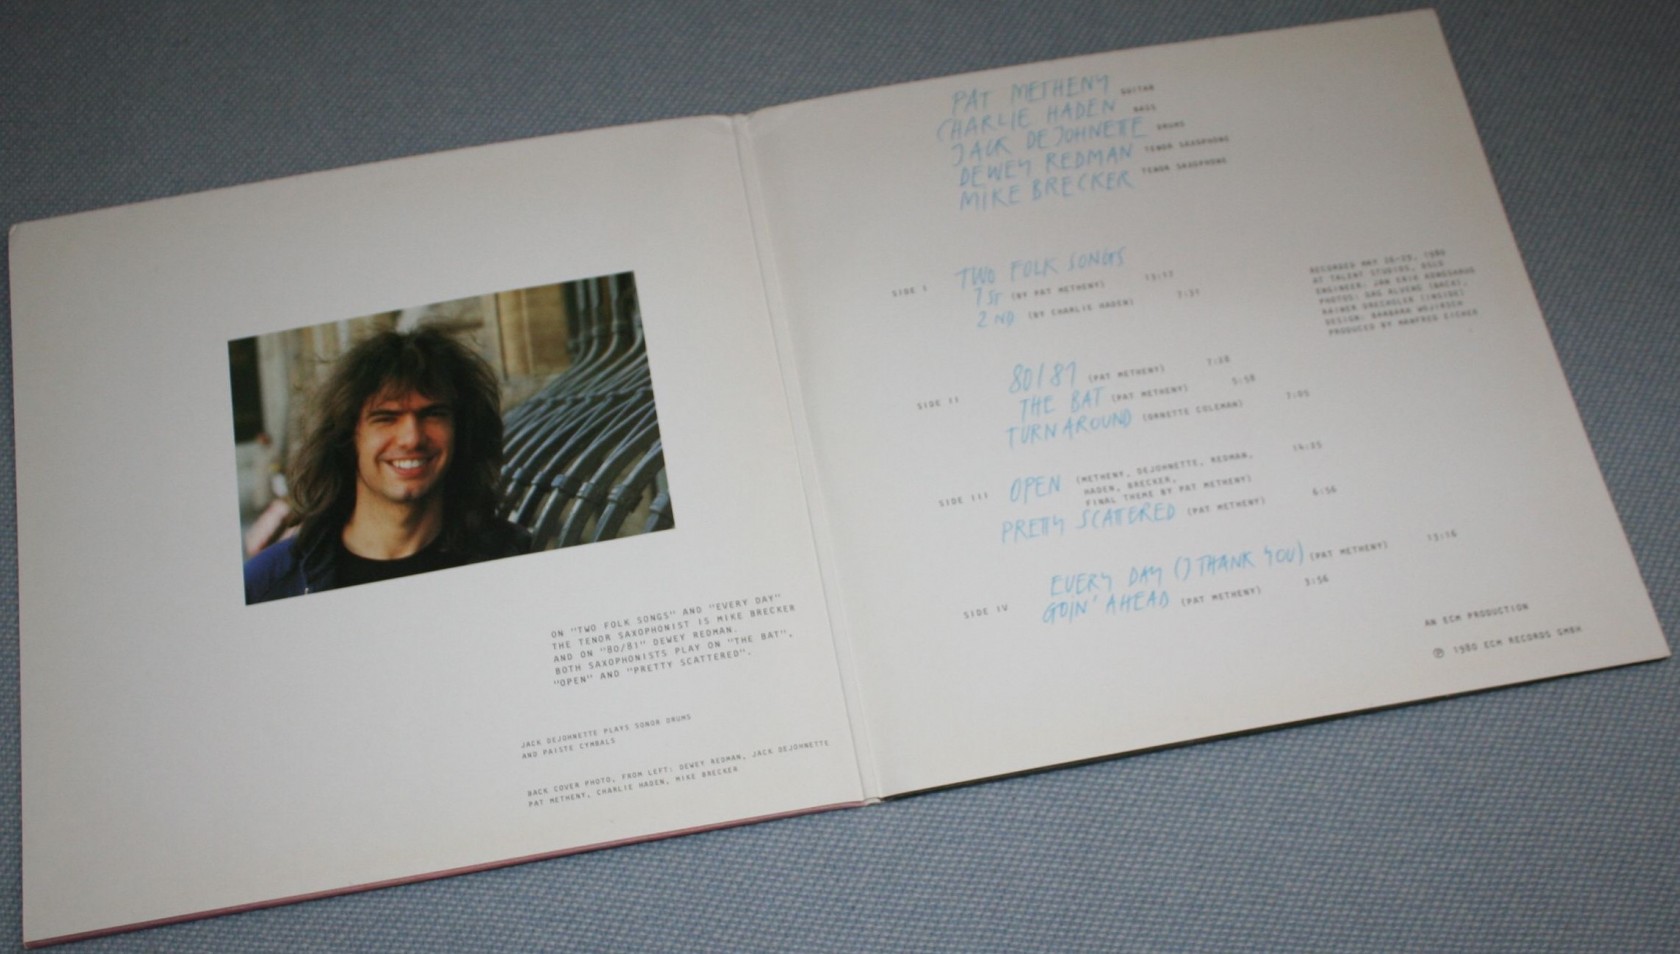 ON "TWO FOLK SONGS" AND "EVERY DAY"
THE TENOR SAXOPHONIST IS MIKE BRECKER
AND ON "80/81" DEWEY REDMAN.
BOTH SAXOPHONISTS PLAY ON "THE BAT",
"OPEN" AND "PRETTY SCATTERED".
JACK DEJOHNETTE PLAYS SONOR DRUMS
AND PAISTE CYMBALS
BACK COVER PHOTO, FROM LEFT: DEWEY REDMAN, JACK DEJOHNETTE
PAT METHENY, CHARLIE HADEN, MIKE BRECKER
PAT METHENY GUITAR
CHARLIE HADEN BASS
JACK DEJOHNETTE DRUMS
DEWEY REDMAN TENOR SAXOPHONE
MIKE BRECKER TENOR SAXOPHONE
SIDE I TWO FOLK SONGS
1ST (BY PAT METHENY) 13:17
2ND (BY CHARLIE HADEN) 7:31
SIDE II 80/81 (PAT METHENY) 7:28
THE BAT (PAT METHENY) 5:58
TURNAROUND (ORNETTE COLEMAN) 7:05
SIDE III OPEN (METHENY, DEJOHNETTE, REDMAN, 14:25
HADEN, BRECKER,
FINAL THEME BY PAT METHENY)
PRETTY SCATTERED (PAT METHENY) 6:56
SIDE IV EVERY DAY (I THANK YOU) (PAT METHENY) 13:16
GOIN' AHEAD (PAT METHENY) 3:56
RECORDED MAY 26-29, 1980
AT TALENT STUDIOS, OSLO
ENGINEER: JAN ERIK KONGSHAUG
PHOTOS: DAG ALVENG (BACK),
RAINER DRECHSLER (INSIDE)
DESIGN: BARBARA WOJIRSCH
PRODUCED BY MANFRED EICHER
AN ECM PRODUCTION
℗ 1980 ECM RECORDS GMBH